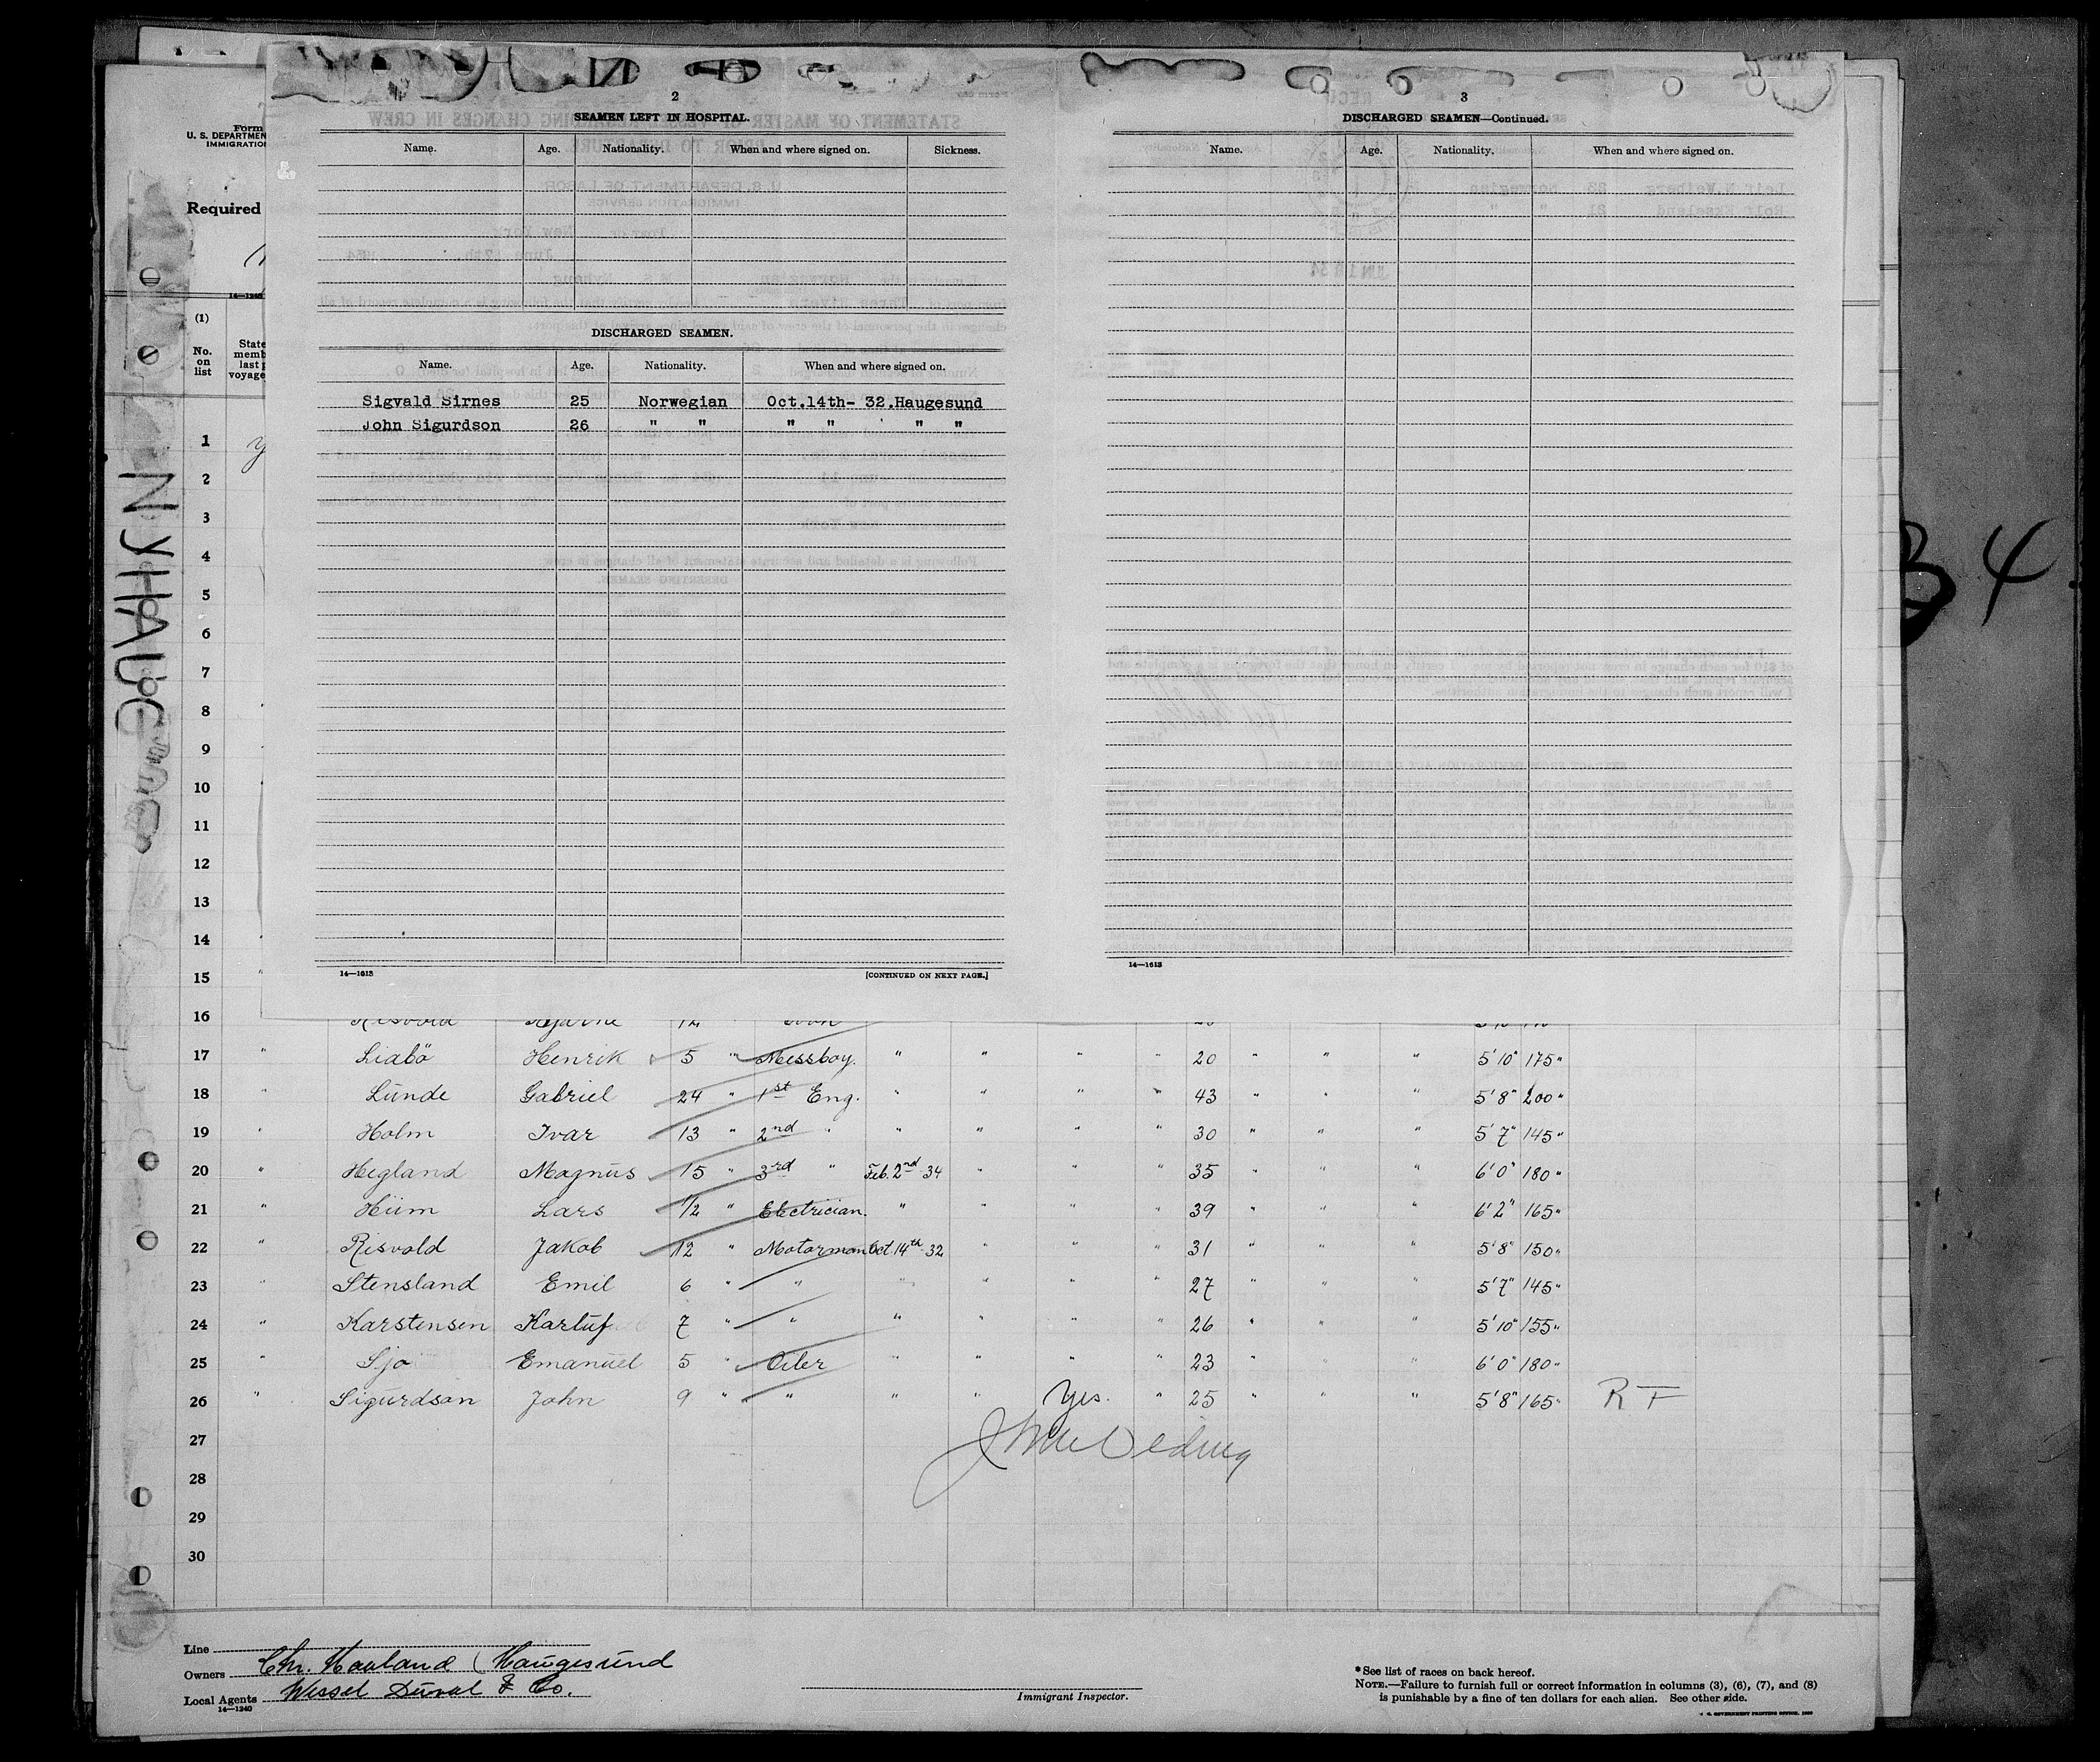 2
SEAMEN LEFT IN HOSPITAL.
Name. Age. Nationality. When and where signed on. Sickness.
DISCHARGED SEAMEN.
Name. Age. Nationality. When and where signed on.
Sigvald Sirnes 25 Norwegian Oct.14th- 32.Haugesund
John Sigurdson 26 " " " " " "
14—1613 [CONTINUED ON NEXT PAGE.]
3
DISCHARGED SEAMEN—Continued.
Name. Age. Nationality. When and where signed on.
14—1613
34
Form
U. S. DEPARTMEN
IMMIGRATIO
Required
14—1240
(1)
No. on list
State
memb
last p
voyage
NYHAUG
1
2
3
4
5
6
7
8
9
10
11
12
13
14
15
16 Risvold Bjarne 12 Cook
17 " Liabö Henrik 5 " Messboy. " " " " 20 " " " 5'10" 175"
18 " Lunde Gabriel 24 " 1st Eng. " " " " 43 " " " 5'8" 200"
19 " Holm Ivar 13 " 2nd " " " " " 30 " " " 5'7" 145"
20 " Hegland Magnus 15 " 3rd " Feb. 2nd 34 " " " 35 " " " 6'0" 180"
21 " Hüm Lars 1/2 " Electrician. " " " " 39 " " " 6'2" 165"
22 " Risvold Jakob 12 " Motorman Oct 14th 32 " " " 31 " " " 5'8" 150"
23 " Stensland Emil 6 " " " " " " 27 " " " 5'7" 145"
24 " Karstensen Karluf 7 " " " " " " 26 " " " 5'10" 155"
25 " Sjo Emanuel 5 " Oiler " " " " 23 " " " 6'0" 180"
26 " Sigurdson John 9 " " " " Yes. " 25 " " " 5'8" 165" R F
27
28
29
30
Line
Owners Chr. Haaland (Haugesund
Local Agents Wessel Duval & Co.
14—1240
Immigrant Inspector.
*See list of races on back hereof.
NOTE.—Failure to furnish full or correct information in columns (3), (6), (7), and (8)
is punishable by a fine of ten dollars for each alien. See other side.